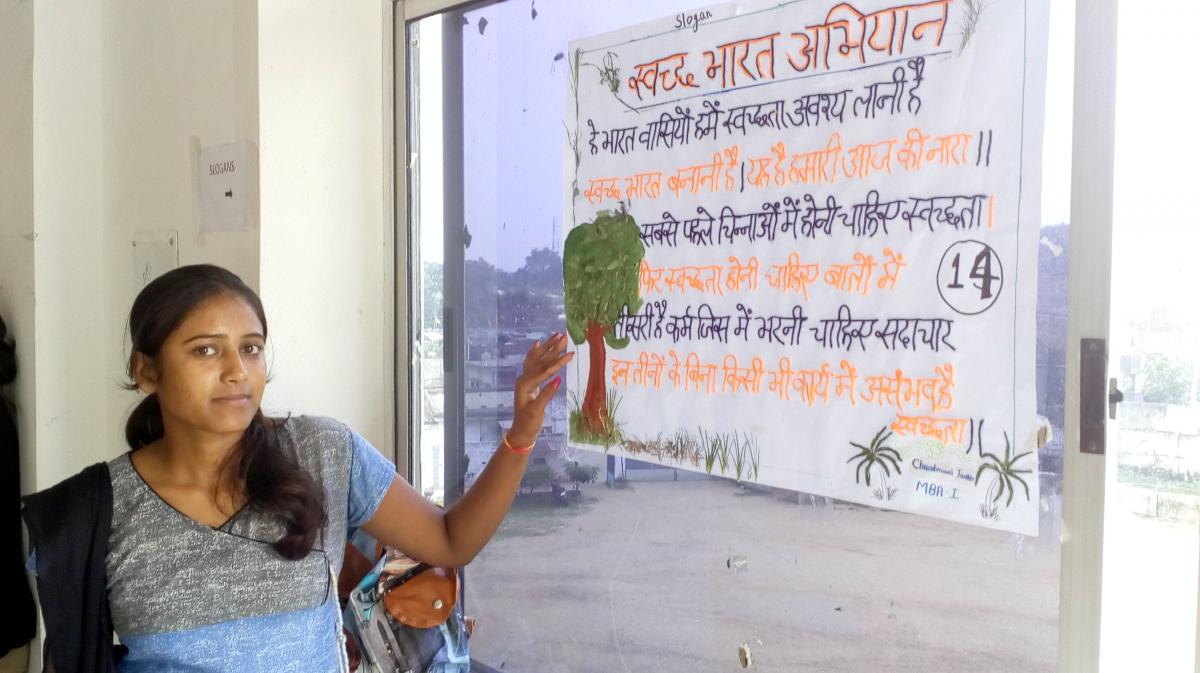 SLOGANS
Slogan
स्वच्छ भारत अभियान
हे भारत वासियों हमें स्वच्छता अवश्य लानी है
स्वच्छ भारत बनानी है | यह है हमारी आज की नारा ||
सबसे पहले चिन्नाओं में होनी चाहिए स्वच्छता |
फिर स्वच्छता होनी चाहिए बातों में
14
तीसरी है कर्म जिस में भरनी चाहिए सदाचार
इन तीनों के बिना किसी भी कार्य में असंभव है
स्वच्छता ||
MBA-I